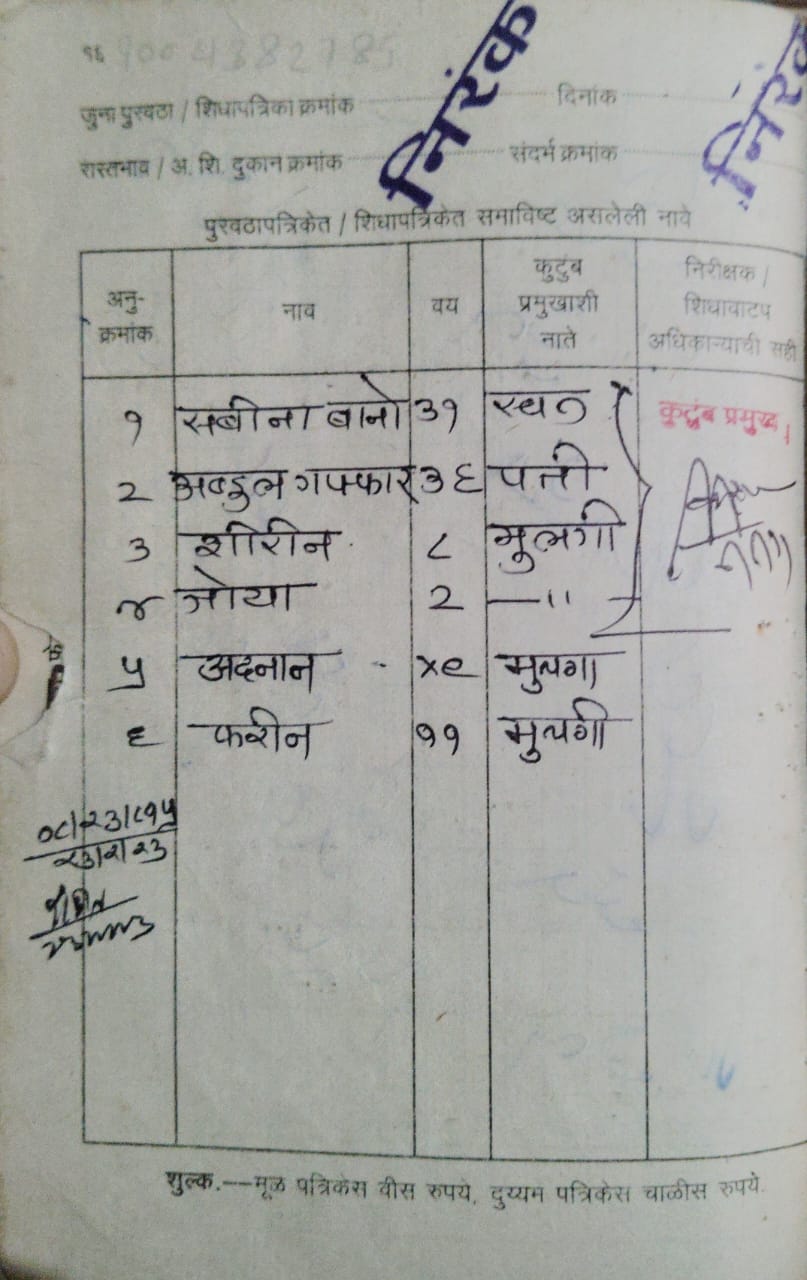 १६
जुना पुरवठा / शिधापत्रिका क्रमांक दिनांक
रास्तभाव / अ. शि. दुकान क्रमांक संदर्भ क्रमांक
निरंक
निरंक
पुरवठापत्रिकेत / शिधापत्रिकेत समाविष्ट असलेली नावे
अनु-क्रमांक नाव वय कुटुंब प्रमुखाशी नाते निरीक्षक / शिधावाटप अधिकाऱ्याची सही
१ सबीना बानो ३१ स्वतः कुटुंब प्रमुख
२ अब्दुल गफ्फार ३६ पती
३ शीरीन ८ मुलगी
४ जोया २ —॥
५ अदनान मुलगा
६ फरीन ११ मुलगी
शुल्क.—मूळ पत्रिकेस वीस रुपये, दुय्यम पत्रिकेस चाळीस रुपये.